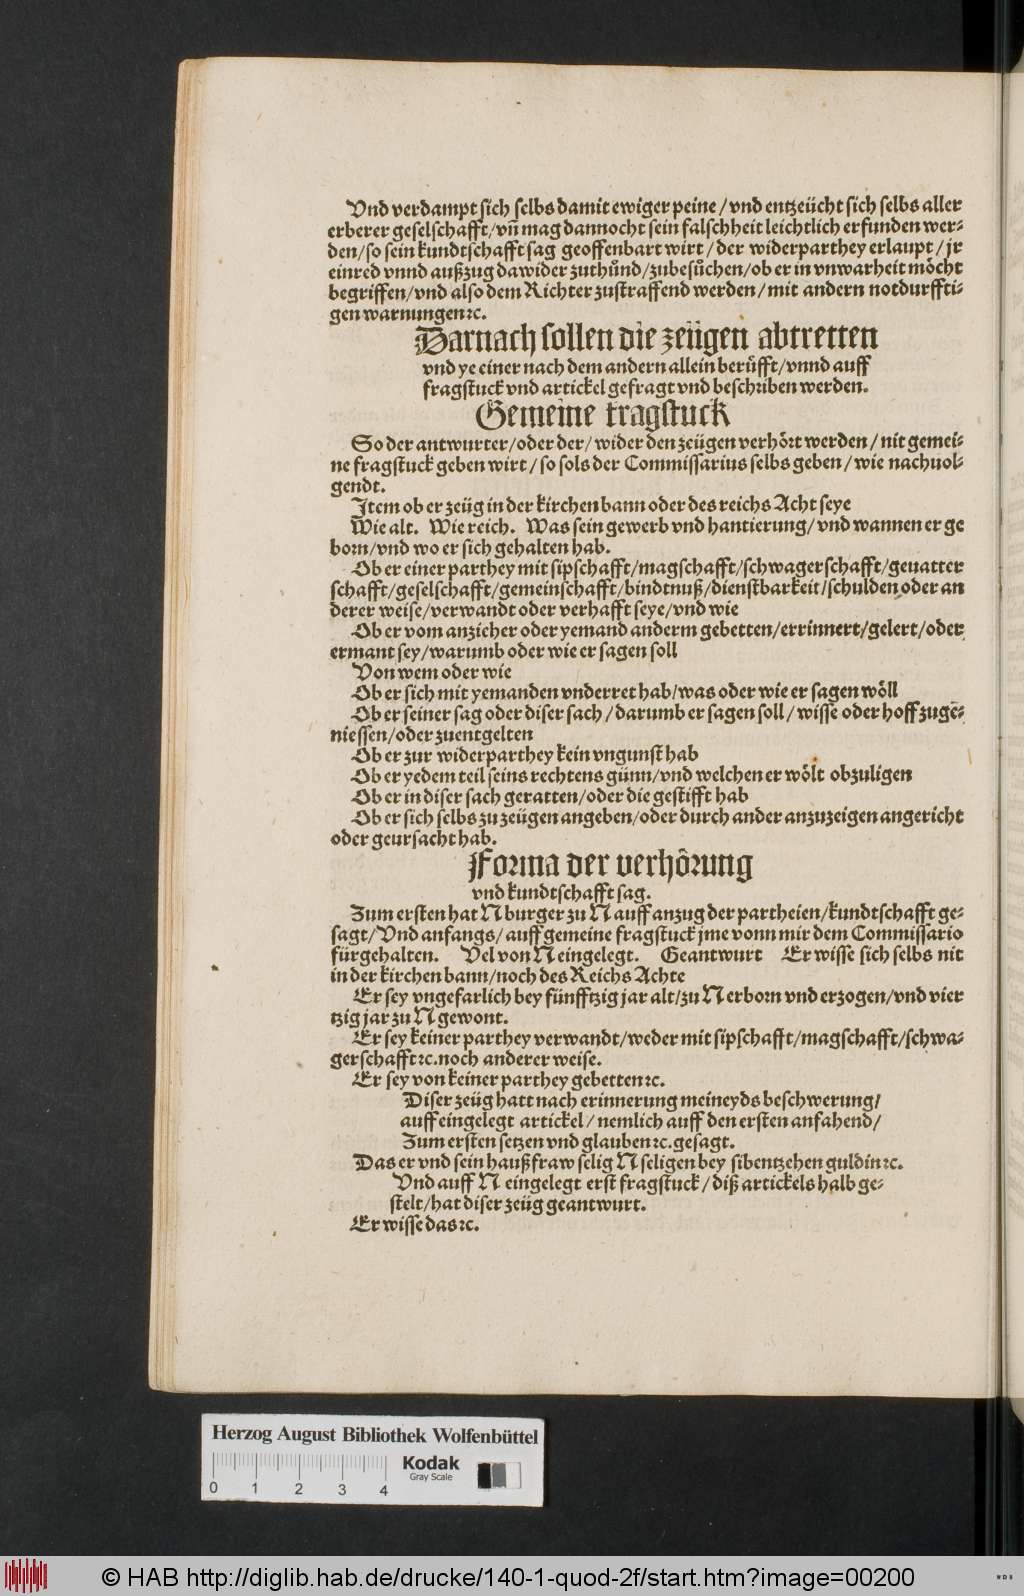 Vnd verdampt sich selbs damit ewiger peine / vnd entzeücht sich selbs aller
erberer geselschafft/vñ mag dannocht sein falschheit leichtlich erfunden wer-
den/so sein kundtschafft sag geoffenbart wirt / der widerparthey erlaupt / jr
einred vnnd außzug dawider zuthůnd/zubesůchen/ob er in vnwarheit möcht
begriffen/vnd also dem Richter zustraffend werden/ mit andern notdurffti-
gen warnungen ꝛc.
Darnach sollen die zeügen abtretten
vnd ye einer nach dem andern allein berůfft/vnnd auff
fragstuck vnd artickel gefragt vnd beschriben werden.
Gemeine fragstuck
So der antwurter/oder der/ wider den zeügen verhört werden / nit gemei-
ne fragstuck geben wirt / so sols der Commissarius selbs geben/ wie nachuol-
gendt.
Item ob er zeüg in der kirchen bann oder des reichs Acht seye
Wie alt. Wie reich. Was sein gewerb vnd hantierung/ vnd wannen er ge
born/vnd wo er sich gehalten hab.
Ob er einer parthey mit sipschafft/magschafft/schwagerschafft/geuatter
schafft/geselschafft/gemeinschafft/bindtnuß/dienstbarkeit/schulden oder an
derer weise/verwandt oder verhafft seye/vnd wie
Ob er vom anzieher oder yemand anderm gebetten/errinnert/gelert/oder
ermant sey/warumb oder wie er sagen soll
Von wem oder wie
Ob er sich mit yemanden vnderret hab/was oder wie er sagen wöll
Ob er seiner sag oder diser sach / darumb er sagen soll/ wisse oder hoff zugē-
niessen/oder zuentgelten
Ob er zur widerparthey kein vngunst hab
Ob er yedem teil seins rechtens günn/vnd welchen er wölt obzuligen
Ob er in diser sach geratten/oder die gestifft hab
Ob er sich selbs zu zeügen angeben/oder durch ander anzuzeigen angericht
oder geursacht hab.
Forma der verhörung
vnd kundtschafft sag.
Zum ersten hat N burger zu N auff anzug der partheien/kundtschafft ge-
sagt/Vnd anfangs/ auff gemeine fragstuck jme vonn mir dem Commissario
fürgehalten. Vel von N eingelegt. Geantwurt Er wisse sich selbs nit
in der kirchen bann/noch des Reichs Achte
Er sey vngefarlich bey fünfftzig jar alt/zu N erborn vnd erzogen/vnd vier
tzig jar zu N gewont.
Er sey keiner parthey verwandt/weder mit sipschafft/magschafft/schwa-
gerschafft ꝛc. noch anderer weise.
Er sey von keiner parthey gebetten ꝛc.
Diser zeüg hatt nach erinnerung meineyds beschwerung/
auff eingelegt artickel/ nemlich auff den ersten anfahend/
Zum ersten setzen vnd glauben ꝛc. gesagt.
Das er vnd sein haußfraw selig N seligen bey sibentzehen guldin ꝛc.
Vnd auff N eingelegt erst fragstuck / diß artickels halb ge-
stelt/hat diser zeüg geantwurt.
Er wisse das ꝛc.
Herzog August Bibliothek Wolfenbüttel
Kodak
Gray Scale
0 1 2 3 4
© HAB http://diglib.hab.de/drucke/140-1-quod-2f/start.htm?image=00200